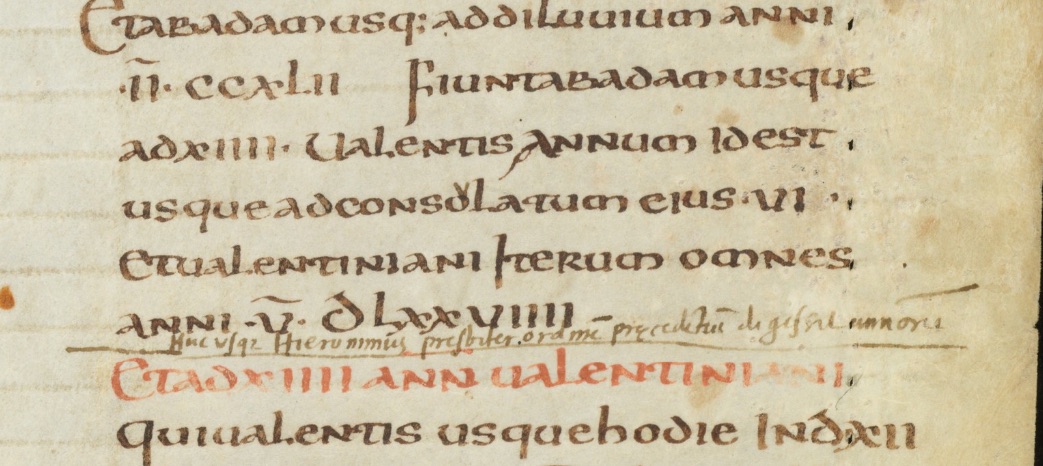 Etabadamusq; addiluuium anni
·II̅· CCXLII Fiuntabadamusque
adxiiii· Ualentis Annum Idest
usqueadconsulatum eius·VI·
Etualentiniani Iterum omnes
anni·V̅· DLXXVIIII
huc usq; Hieronimus presbiter ordine precedentiū digessit annorū
Etadxiiii ann ualentiniani
Quiualentis usquehodie Indxii